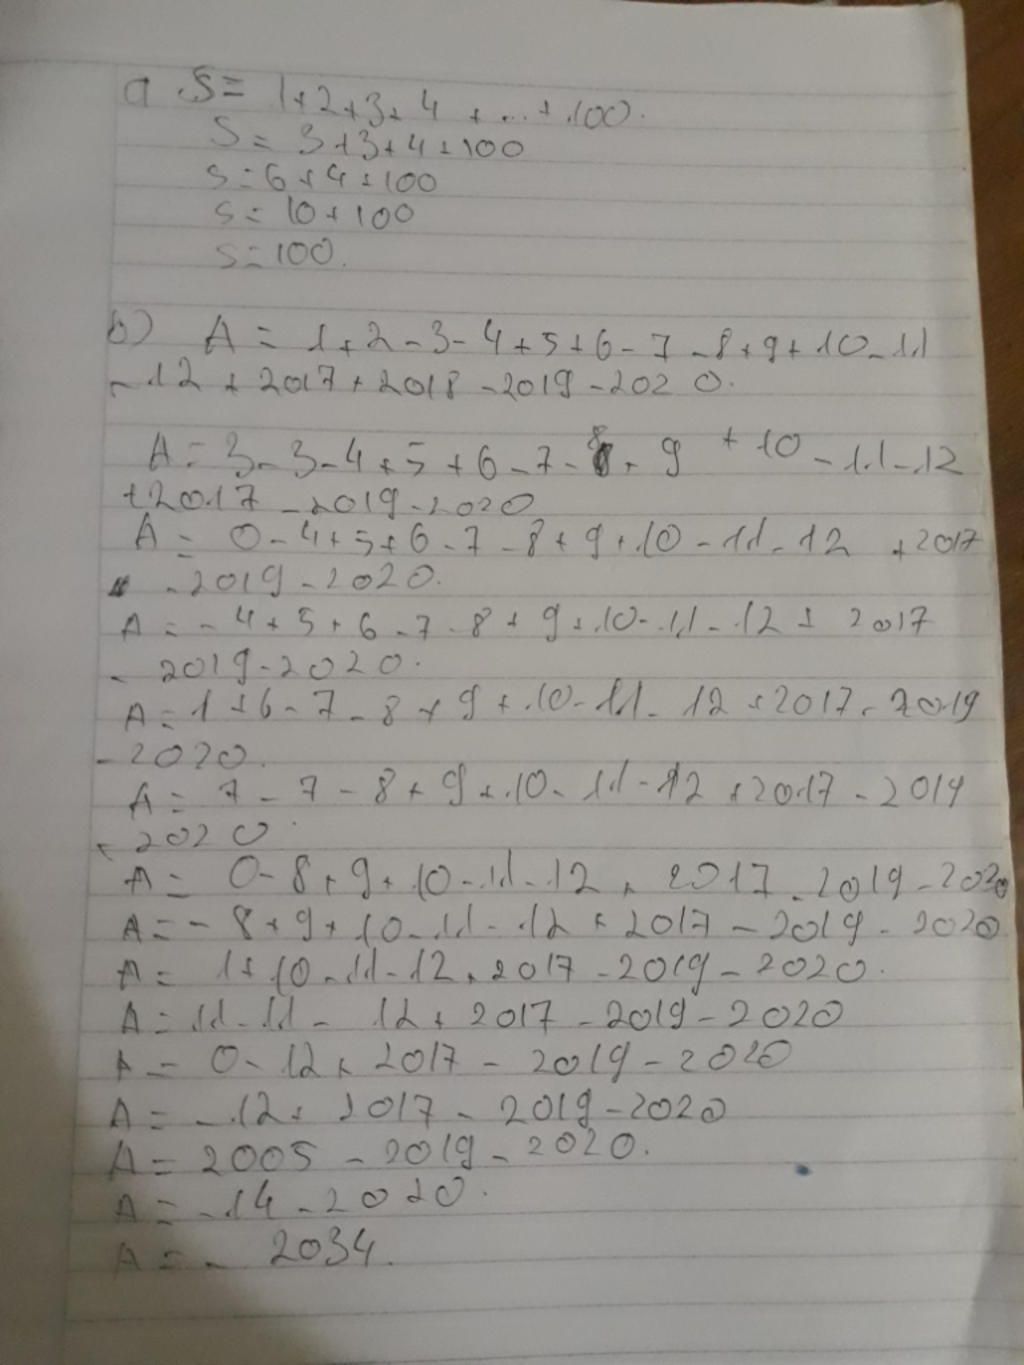 a S = 1+2+3+4 + ... + 100.
S = 3+3+4+100
S = 6+4+100
S = 10+100
S = 100.
b) A = 1+2-3-4+5+6-7-8+9+10-11
-12+2017+2018-2019-2020.
A = 3-3-4+5+6-7-8+9+10-11-12
+2017-2019-2020
A = 0-4+5+6-7-8+9+10-11-12+2017
-2019-2020.
A = -4+5+6-7-8+9+10-11-12+2017
-2019-2020.
A = 1+6-7-8+9+10-11-12+2017-2019
-2020.
A = 7-7-8+9+10-11-12+2017-2019
-2020.
A = 0-8+9+10-11-12+2017-2019-2020
A = -8+9+10-11-12+2017-2019-2020
A = 1+10-11-12+2017-2019-2020.
A = 11-11-12+2017-2019-2020
A = 0-12+2017-2019-2020
A = -12+2017-2019-2020
A = 2005-2019-2020.
A = -14-2020.
A = -2034.